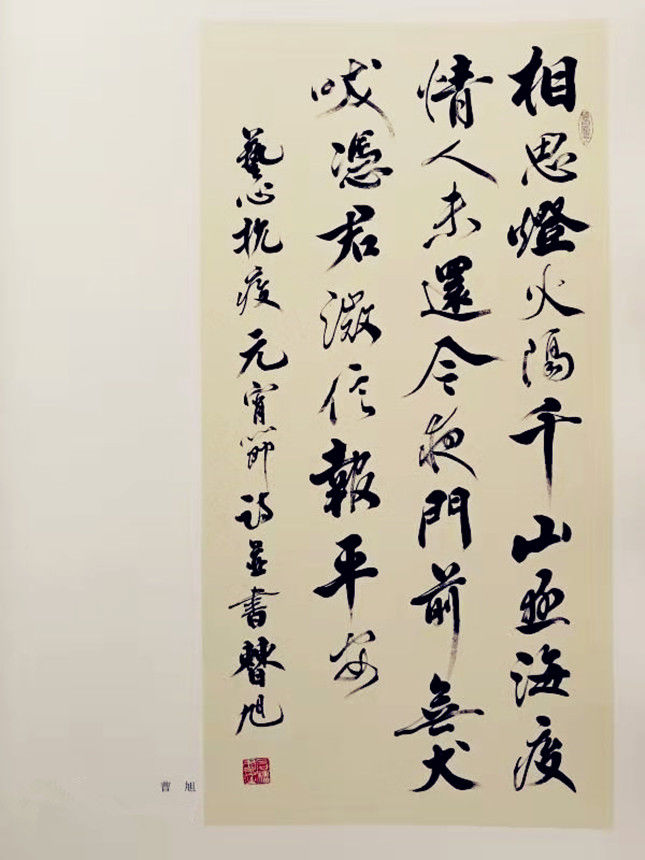 相思燈火隔千山海疫
情人未還今夜門前無犬
吠憑君微信報平安
藝心抗疫元宵節詩並書曹旭
曹 旭